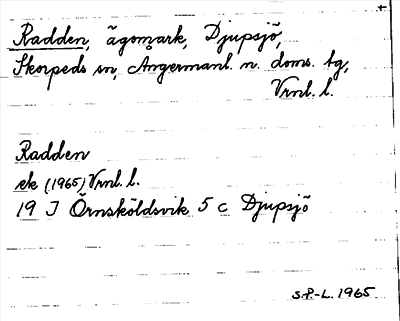 Radden, ägomark, Djupsjö,
Skorpeds sn Ångermanl. n. doms. tg,
Vrnl. l.
Radden
ek (1965) Vrnl. l.
19 J Örnsköldsvik 5 c Djupsjö
S.P.-L. 1965